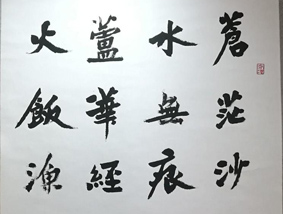 蒼茫沙
水無痕
蘆華經
火飯源